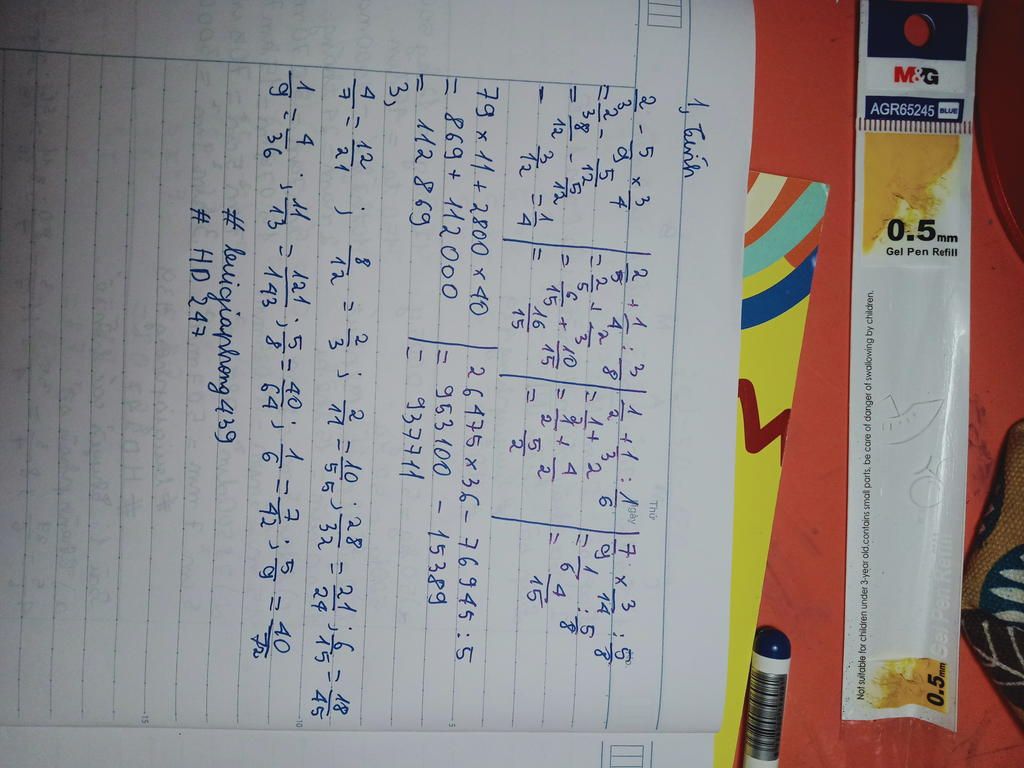 1, Tính
2/3 - 5/9 × 3/4
= 2/3 - 5/12
= 8/12 - 5/12
= 3/12 = 1/4
2/5 + 1/4 : 3/8
= 2/5 + 2/3
= 6/15 + 10/15
= 16/15
1/2 + 1/3 : 1/6
= 1/2 + 2
= 1/2 + 4/2
= 5/2
7/9 × 3/14 : 5/8
= 1/6 : 5/8
= 4/15
79 × 11 + 2800 × 40
= 869 + 112000
= 112 869
26475 × 36 - 76945 : 5
= 953100 - 15389
= 937711
3,
4/7 = 12/21 ; 8/12 = 2/3 ; 2/11 = 10/55 ; 28/32 = 21/24 ; 6/15 = 18/45
1/9 = 4/36 ; 11/13 = 121/143 ; 5/8 = 40/64 ; 1/6 = 7/42 ; 5/9 = 40/72
# buigiaphong439
# HD 247
Thứ
Ngày
5
10
15
M&G
AGR65245 BLUE
0.5mm
Gel Pen Refill
Not suitable for children under 3-year old,contains small parts, be care of danger of swallowing by children.
Gel Pen Refill
0.5mm